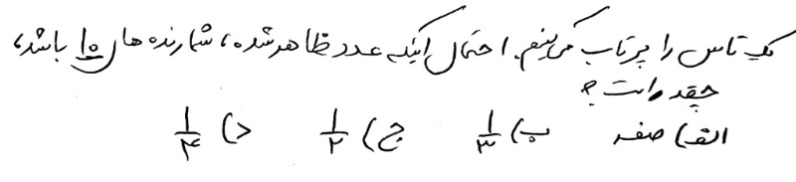 یک تاس را پرتاب می‌کنیم. احتمال اینکه عدد ظاهر شده، شمارنده های ۱۰ باشد،
چقدر است؟
الف) صفر ب) ۱/۳ ج) ۱/۲ د) ۱/۴